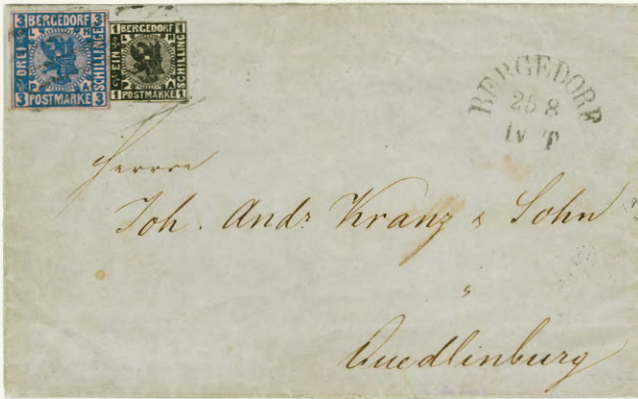 3 BERGEDORF 3
DREI
SCHILLINGE
3 POSTMARKE 3
1 BERGEDORF 1
EIN
SCHILLING
1 POSTMARKE 1
BERGEDORF
25 8
IV T
Herren
Joh. Andr. Kranz & Sohn
"
Quedlinburg